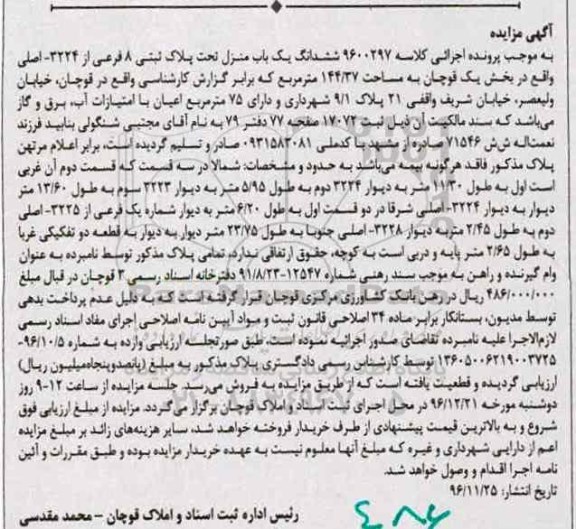 آگهی مزایده
به موجب پرونده اجرائی کلاسه ۹۶۰۰۲۹۷ ششدانگ یک باب منزل تحت پلاک ثبتی ۸ فرعی از ۳۲۲۴- اصلی
واقع در بخش یک قوچان به مساحت ۱۴۴/۳۷ مترمربع که برابر گزارش کارشناسی واقع در قوچان، خیابان
ولیعصر، خیابان شریف واقفی ۲۱ پلاک ۹/۱ شهرداری و دارای ۷۵ مترمربع اعیان با امتیازات آب، برق و گاز
می‌باشد که سند مالکیت آن ذیل ثبت ۱۷۰۷۲ صفحه ۷۷ دفتر ۷۹ به نام آقای مجتبی شنگولی بنابید فرزند
نعمت‌اله ش‌ش ۷۱۵۴۶ صادره از مشهد با کدملی ۰۹۳۱۵۸۳۰۸۱ صادر و تسلیم گردیده است، برابر اعلام مرتهن
پلاک مذکور فاقد هرگونه بیمه می‌باشد به حدود و مشخصات: شمالا در سه قسمت که قسمت دوم آن غربی
است اول به طول ۱۱/۳۰ متر به دیوار ۳۲۲۴ دوم به طول ۵/۹۵ متر به دیوار ۳۲۲۳ سوم به طول ۱۳/۶۰ متر
دیوار به دیوار ۳۲۲۴-اصلی شرقا در دو قسمت اول به طول ۶/۲۰ متر به دیوار شماره یک فرعی از ۳۲۲۵- اصلی
دوم به طول ۲/۴۵ متر به دیوار ۳۲۲۸- اصلی جنوبا به طول ۲۳/۷۵ متر دیوار به دیوار به قطعه دو تفکیکی غربا
به طول ۲/۶۵ متر پایه و دربی است به کوچه، حقوق ارتفاقی ندارد، تمامی پلاک مذکور توسط نامبرده به عنوان
وام گیرنده و راهن به موجب سند رهنی شماره ۱۲۵۴۷-۹۱/۸/۲۳ دفترخانه اسناد رسمی ۳ قوچان در قبال مبلغ
۴۸۶/۰۰۰/۰۰۰ ریال در رهن بانک کشاورزی مرکزی قوچان قرار گرفته است که به دلیل عدم پرداخت بدهی
توسط مدیون، بستانکار برابر ماده ۳۴ اصلاحی قانون ثبت و مواد آیین نامه اصلاحی اجرای مفاد اسناد رسمی
لازم‌الاجرا علیه نامبرده تقاضای صدور اجرائیه نموده است. طبق صورتجلسه ارزیابی وارده به شماره ۹۶/۱۰/۵-
۱۳۶۰۵۰۰۶۲۱۹۰۰۳۷۲۵ توسط کارشناس رسمی دادگستری پلاک مذکور به مبلغ (پانصدوپنجاه‌میلیون ریال)
ارزیابی گردیده و قطعیت یافته است که از طریق مزایده به فروش می‌رسد. جلسه مزایده از ساعت ۱۲-۹ روز
دوشنبه مورخه ۹۶/۱۲/۲۱ در محل اجرای ثبت اسناد و املاک قوچان برگزار می‌گردد. مزایده از مبلغ ارزیابی فوق
شروع و به بالاترین قیمت پیشنهادی از طرف خریدار فروخته خواهد شد، سایر هزینه‌های زائد بر مبلغ مزایده
اعم از دارایی شهرداری و غیره که مبلغ آنها معلوم نیست به عهده خریدار مزایده بوده و طبق مقررات و آئین
نامه اجرا اقدام و وصول خواهد شد.
تاریخ انتشار: ۹۶/۱۱/۲۵
رئیس اداره ثبت اسناد و املاک قوچان – محمد مقدسی